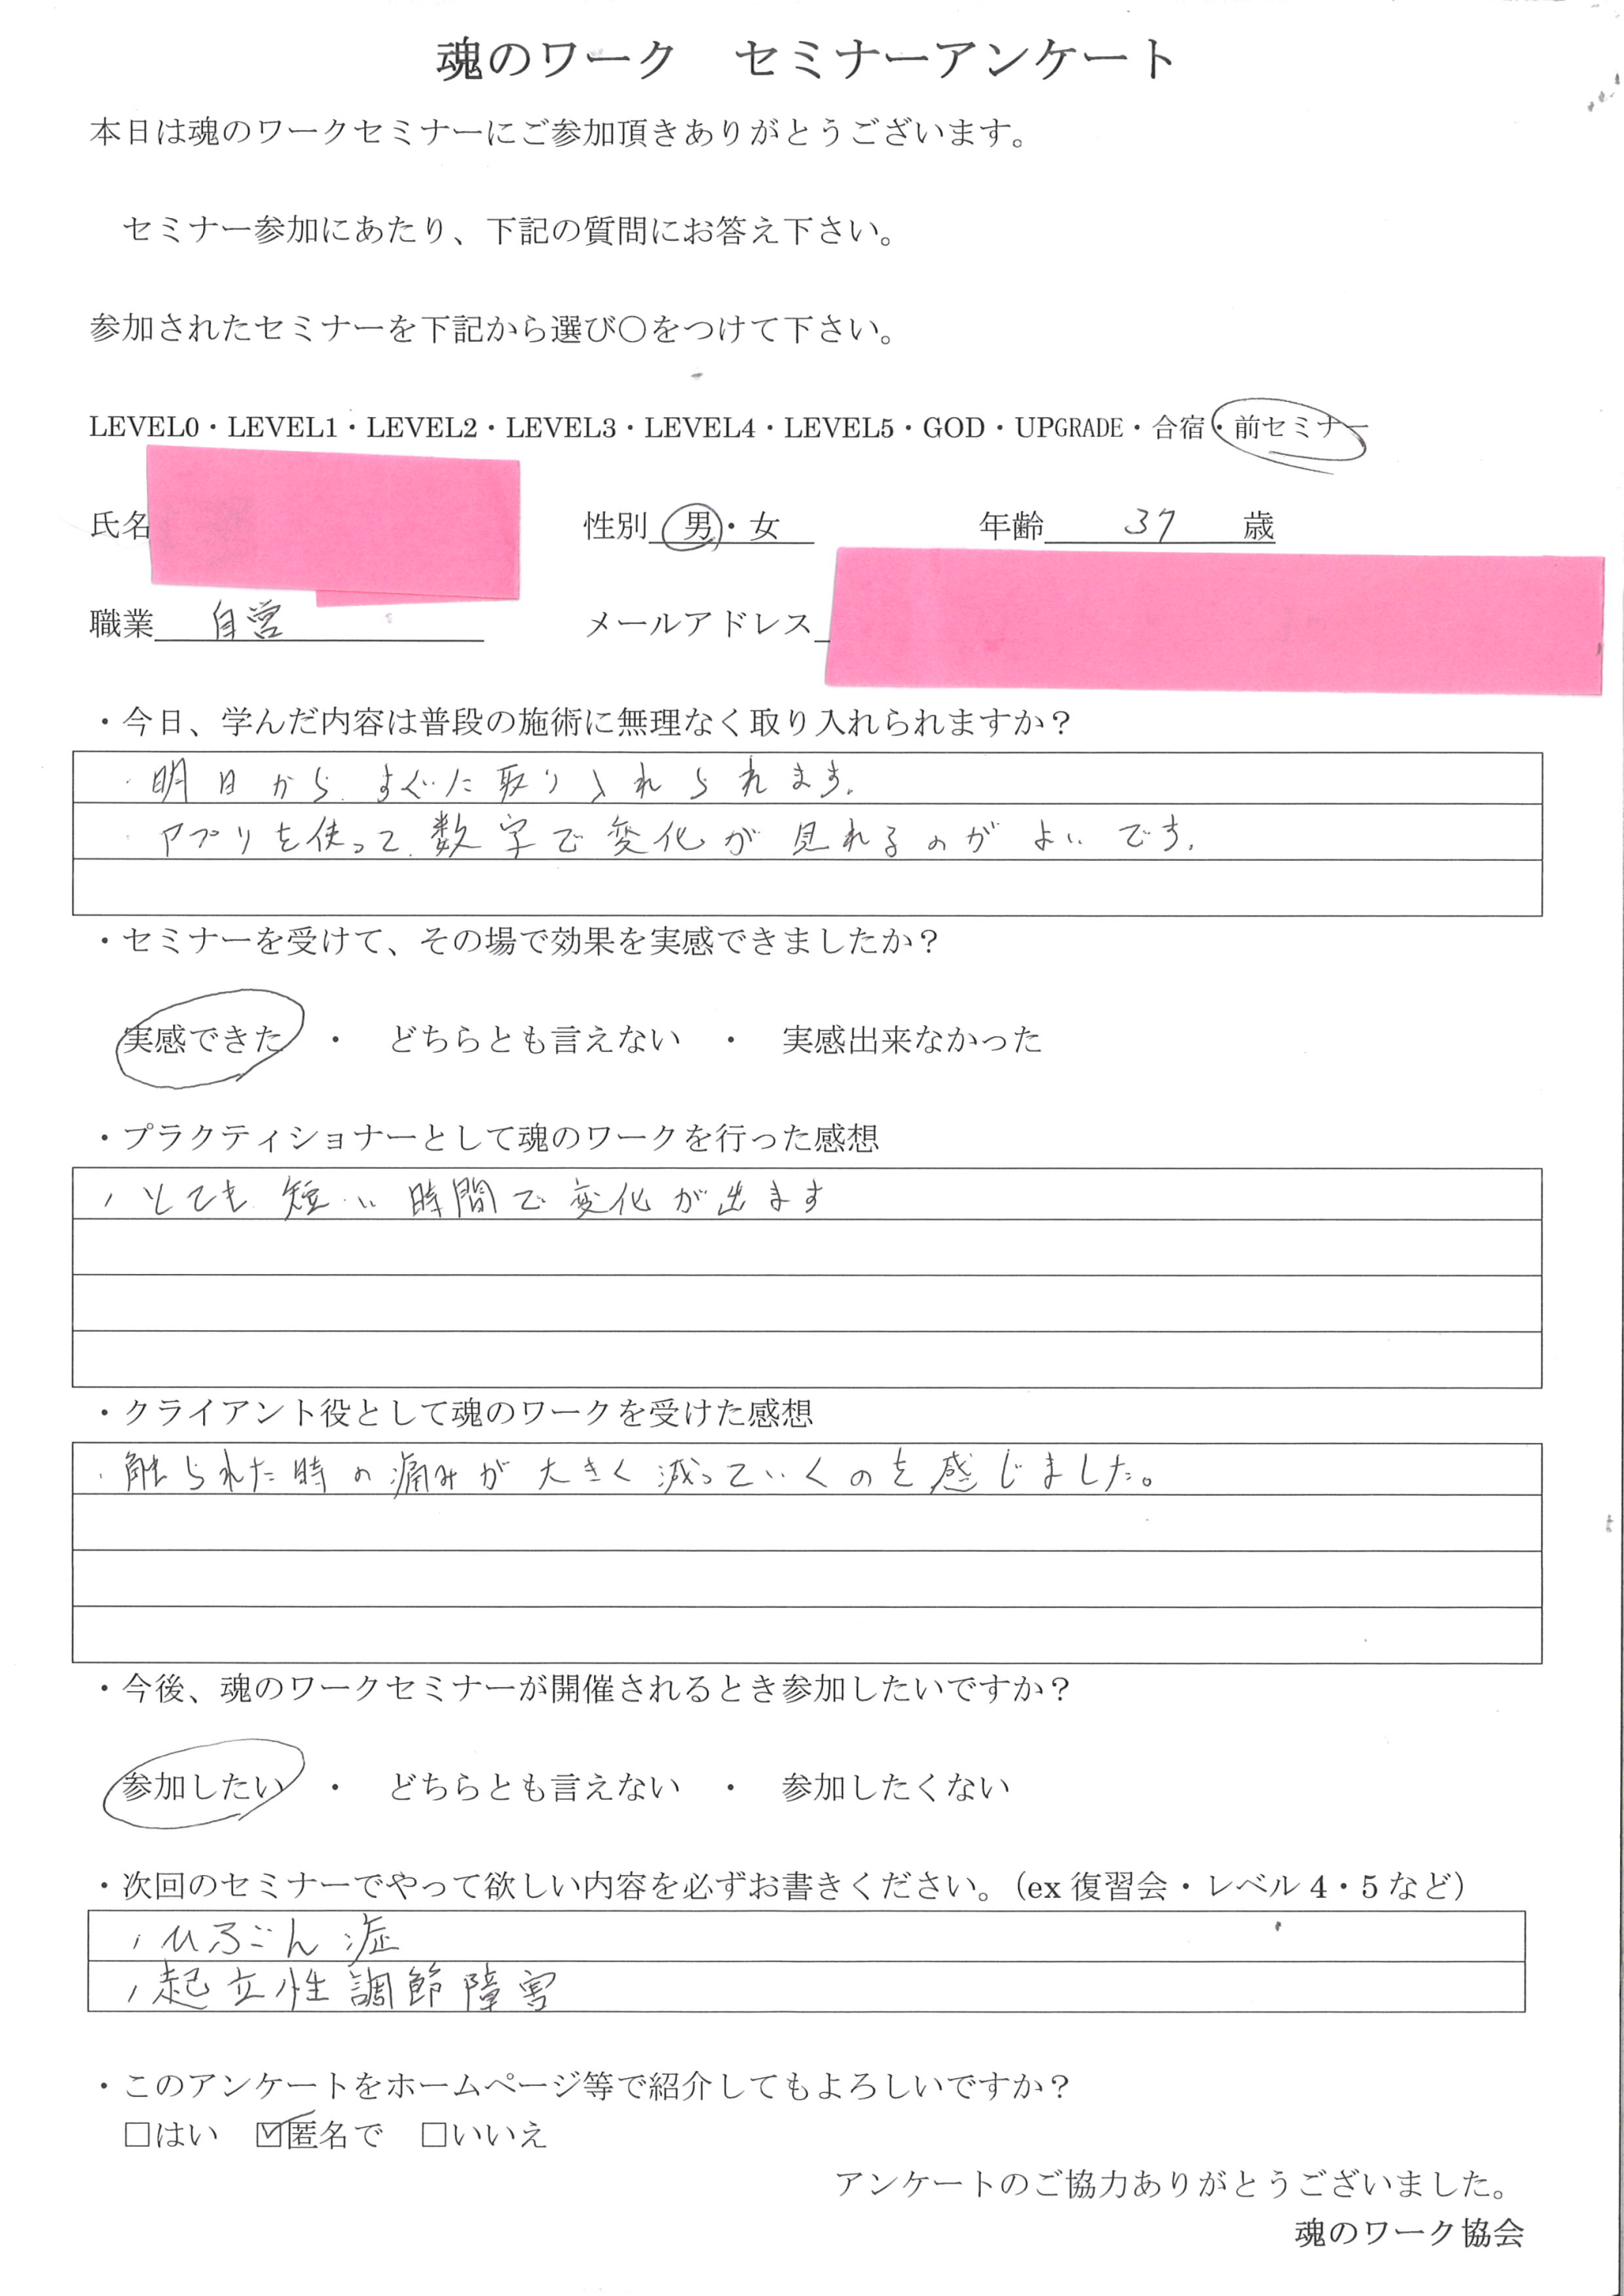 魂のワーク　セミナーアンケート
本日は魂のワークセミナーにご参加頂きありがとうございます。
セミナー参加にあたり、下記の質問にお答え下さい。
参加されたセミナーを下記から選び〇をつけて下さい。
LEVEL0・LEVEL1・LEVEL2・LEVEL3・LEVEL4・LEVEL5・GOD・UPGRADE・合宿・前セミナー
氏名　性別　男・女　年齢　37　歳
職業　自営　メールアドレス
・今日、学んだ内容は普段の施術に無理なく取り入れられますか？
・明日から、すぐに取り入れられます。
・アプリを使って、数字で変化が見れるのがよいです。
・セミナーを受けて、その場で効果を実感できましたか？
実感できた　・　どちらとも言えない　・　実感出来なかった
・プラクティショナーとして魂のワークを行った感想
・とても短い時間で変化が出ます
・クライアント役として魂のワークを受けた感想
・触られた時の痛みが大きく減っていくのを感じました。
・今後、魂のワークセミナーが開催されるとき参加したいですか？
参加したい　・　どちらとも言えない　・　参加したくない
・次回のセミナーでやって欲しい内容を必ずお書きください。（ex 復習会・レベル 4・5 など）
・ひろごん症
・起立性調節障害
・このアンケートをホームページ等で紹介してもよろしいですか？
□はい　☑匿名で　□いいえ
アンケートのご協力ありがとうございました。
魂のワーク協会